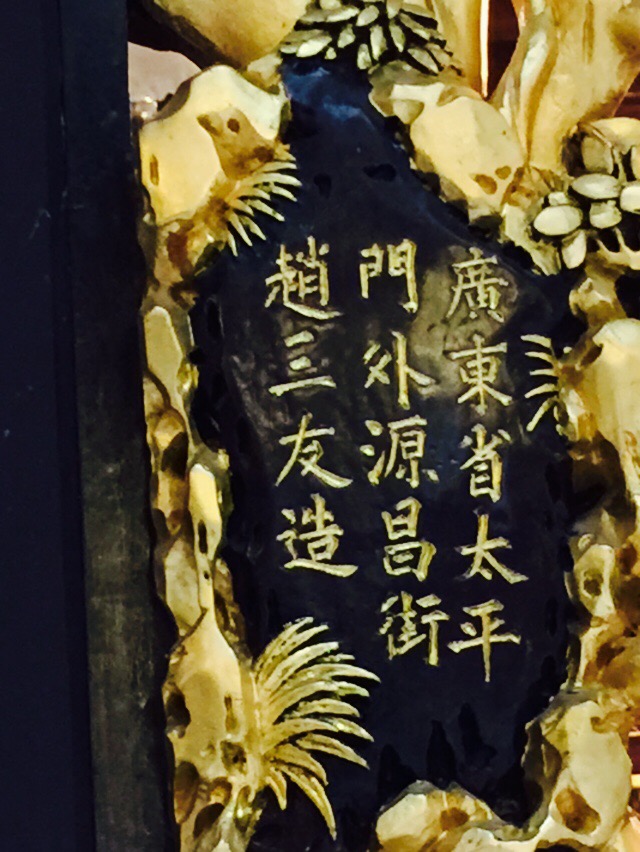 廣東省太平
門外源昌街
趙三友造